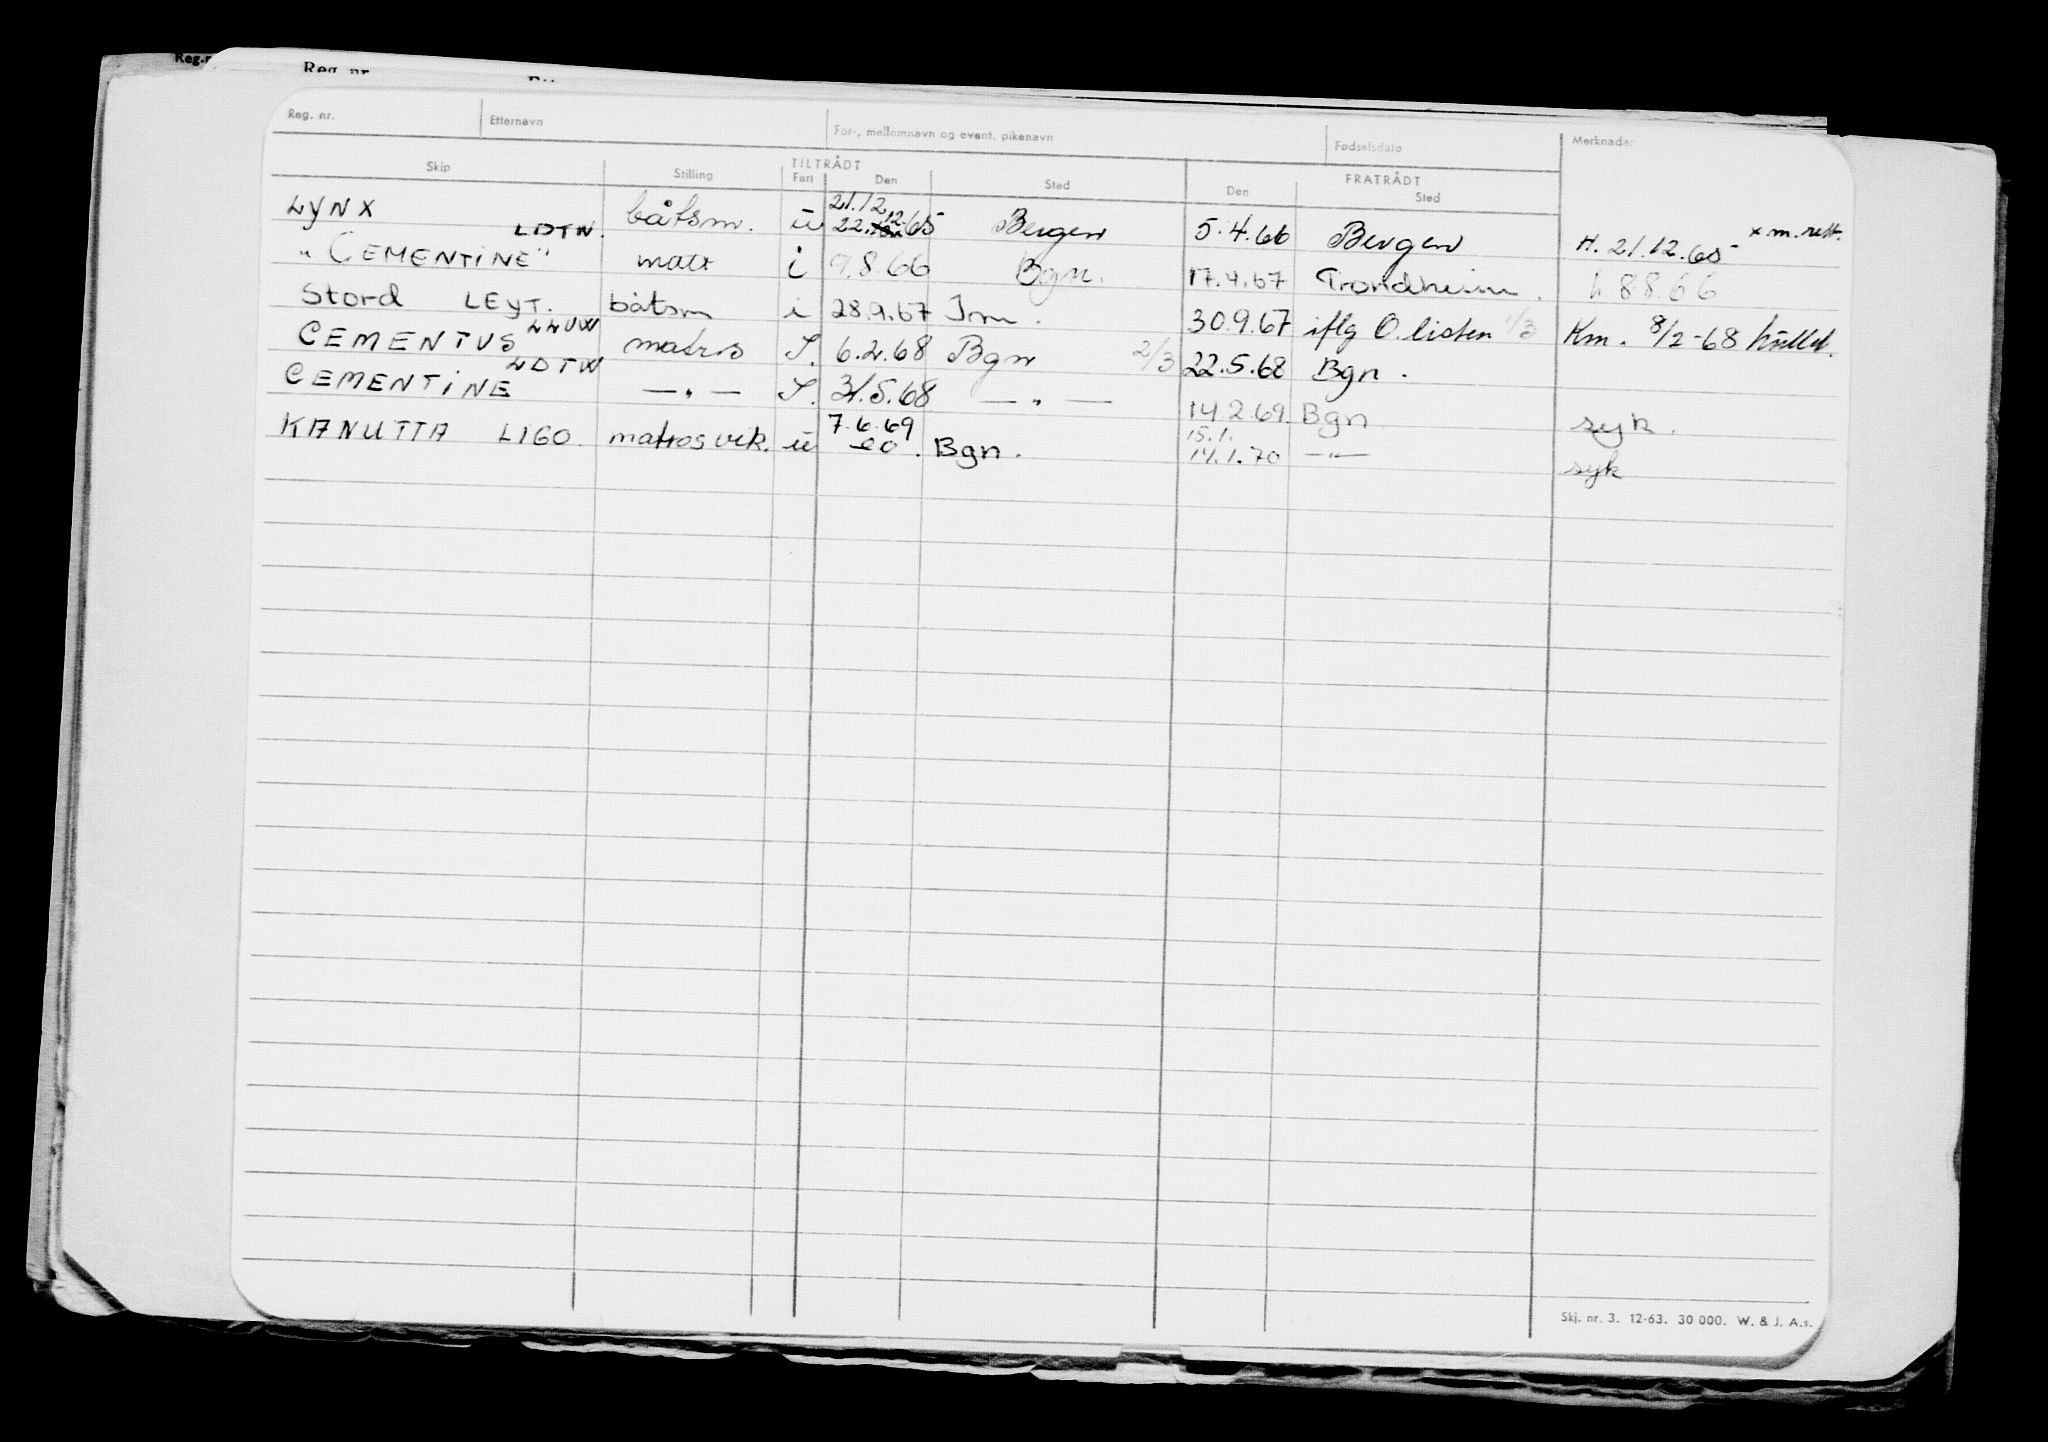 Reg. nr. Etternavn For-, mellomnavn og event. pikenavn Fødselsdato Merknader
TILTRÅDT FRATRÅDT
Skip Stilling Fart Den Sted Den Sted
21.12
LYNX båtsm. u 22.12.65 Bergen 5.4.66 Bergen H. 21.12.65 x m. rett.
LDTW.
"CEMENTINE" matr i 9.8.66 Bgn. 17.4.67 Trondheim. h 8.8.66
Stord LEYT. båtsm i 28.9.67 Im. 30.9.67 iflg O.listen 1/3 Km. 8/2-68
LLUW
CEMENTUS matros S. 6.2.68 Bgn 2/3 22.5.68 Bgn.
LDTW
CEMENTINE —„— S. 31.5.68 —„— 14.2.69. Bgn syk.
7.6.69 15.1.
KANUTTA LIGO. matros vik. u 20. Bgn. 14.1.70 —„— syk
Skj. nr. 3. 12-63. 30 000. W. & J. A.s.